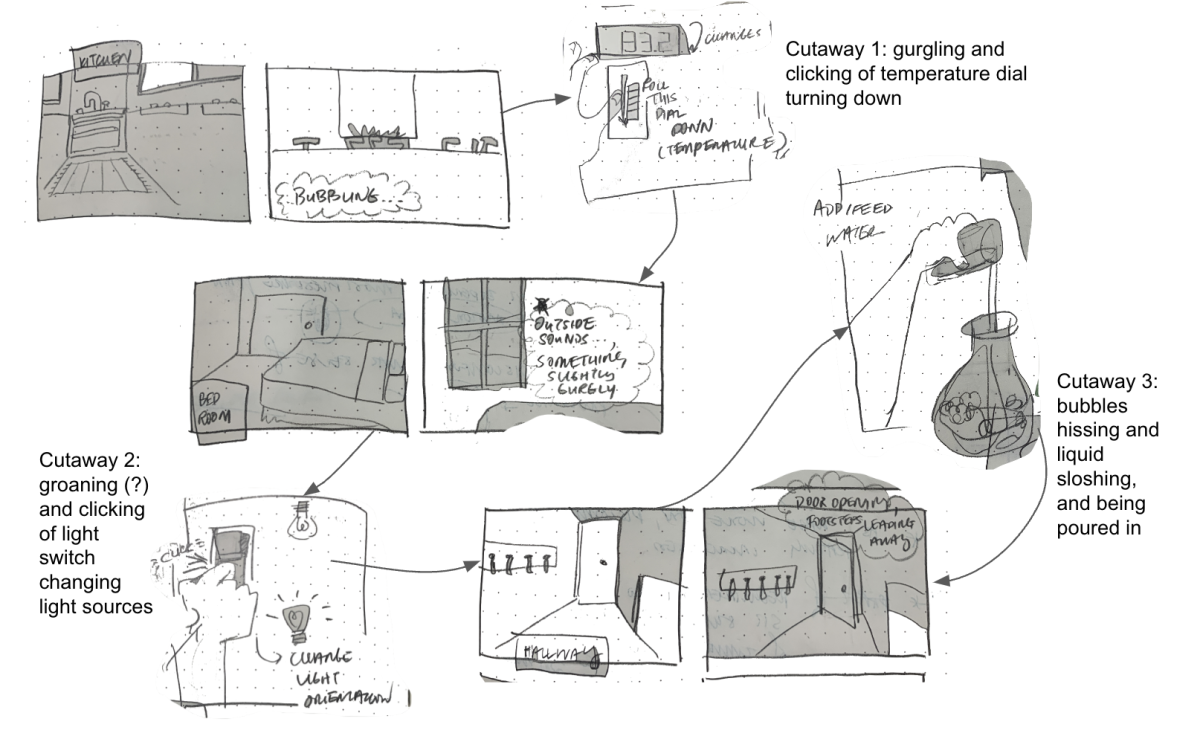 KITCHEN
BUBBLING...
83.2
CHANGES!
ROLL
THIS
DIAL
DOWN
(TEMPERATURE)
Cutaway 1: gurgling and
clicking of temperature dial
turning down
BED
ROOM
OUTSIDE
SOUNDS...,
SOMETHING
SLIGHTLY
GURGLY.
ADD/FEED
WATER
Cutaway 2:
groaning (?)
and clicking
of light
switch
changing
light sources
CLICK
CHANGE
LIGHT
ORIENTATION!
HALLWAY
DOOR OPENING,
FOOTSTEPS LEADING
AWAY
Cutaway 3:
bubbles
hissing and
liquid
sloshing,
and being
poured in